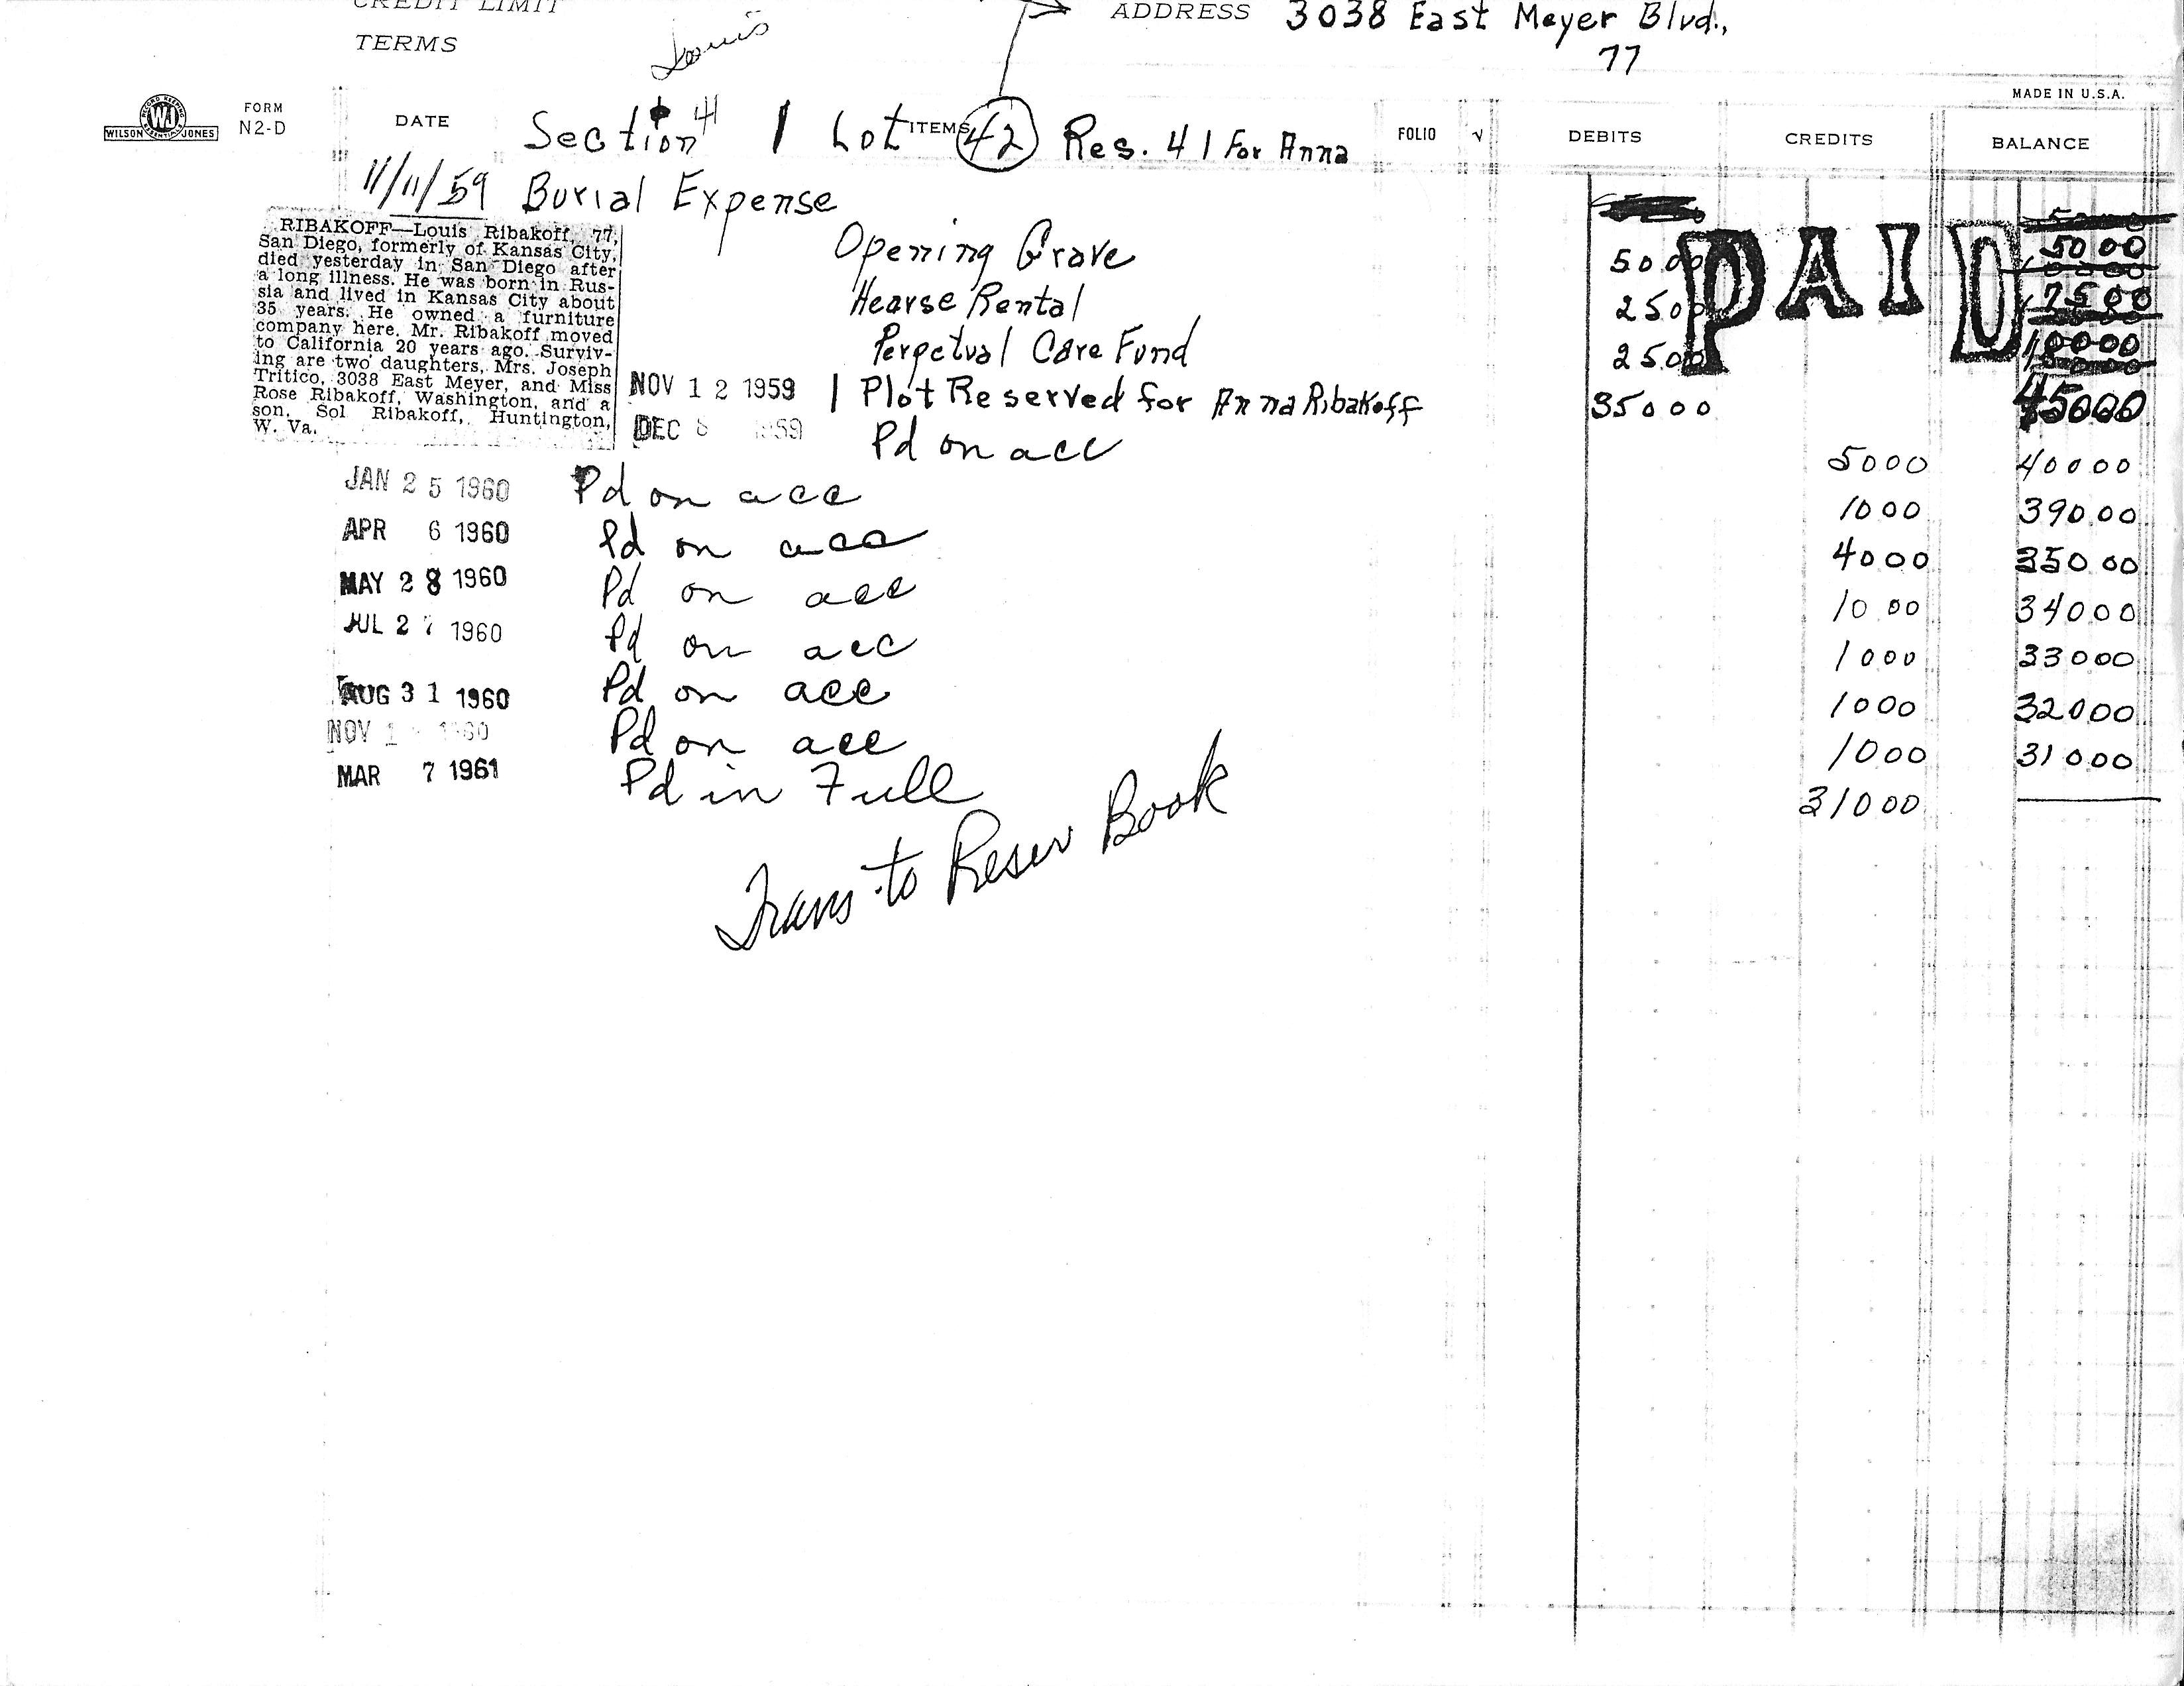 CREDIT LIMIT
ADDRESS 3038 East Meyer Blvd.,
TERMS
Louis
77
MADE IN U.S.A.
WILSON JONES
FORM
N2-D
DATE
ITEMS
FOLIO √ DEBITS CREDITS BALANCE
Section 41 1 Lot 42 Res. 41 For Anna
11/11/59 Burial Expense
RIBAKOFF—Louis Ribakoff, 77,
San Diego, formerly of Kansas City,
died yesterday in San Diego after
a long illness. He was born in Rus-
sia and lived in Kansas City about
35 years. He owned a furniture
company here. Mr. Ribakoff moved
to California 20 years ago. Surviv-
ing are two daughters, Mrs. Joseph
Tritico, 3038 East Meyer, and Miss
Rose Ribakoff, Washington, and a
son, Sol Ribakoff, Huntington,
W. Va.
PAID
Opening Grave 50 00 50 00
Hearse Rental 25 00 75 00
Perpetual Care Fund 25 00 100 00
NOV 12 1959 1 Plot Reserved for Anna Ribakoff 350 00 450 00
DEC 8 1959 Pd on acc 50 00 400 00
JAN 25 1960 Pd on acc 10 00 390 00
APR 6 1960 Pd on acc 40 00 350 00
MAY 28 1960 Pd on acc 10 00 340 00
JUL 27 1960 Pd on acc 10 00 330 00
AUG 31 1960 Pd on acc 10 00 320 00
NOV 1960 Pd on acc 10 00 310 00
MAR 7 1961 Pd in Full 310 00
Trans to Reser Book